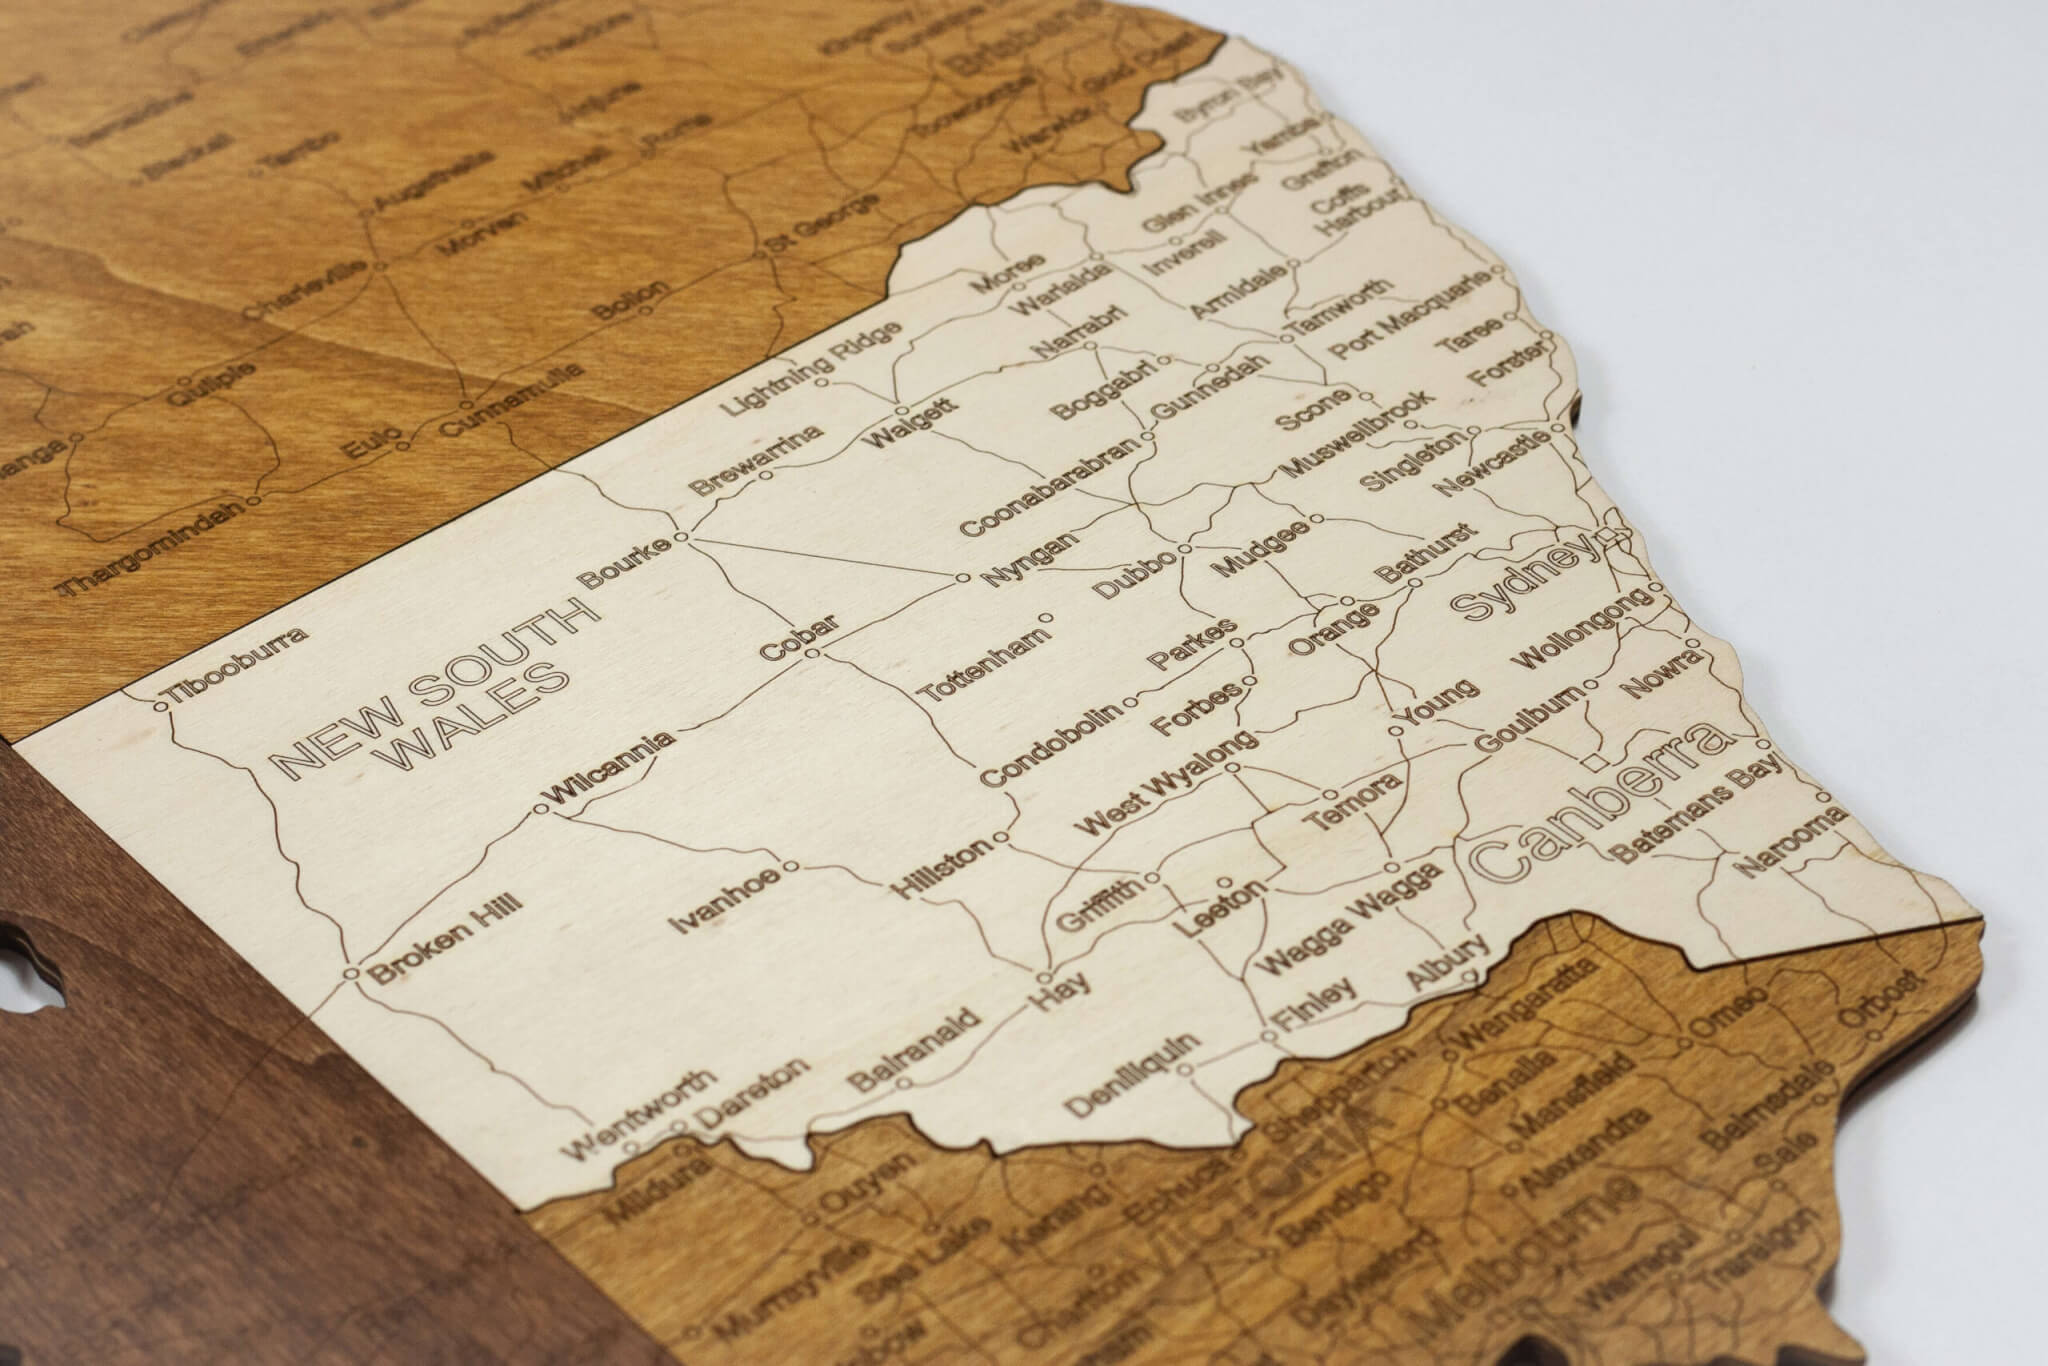 Theodore
Kingaroy
Brisbane
Gold Coast
Injune
Toowoomba
Byron Bay
Blackall
Tambo
Mitchell
Roma
Warwick
Yamba
Augathella
Grafton
Morven
St George
Glen Innes
Coffs
Harbour
Charleville
Moree
Inverell
Bollon
Warialda
Armidale
Tamworth
Port Macquarie
Quilpie
Lightning Ridge
Narrabri
Taree
Cunnamulla
Boggabri
Gunnedah
Forster
Eulo
Walgett
Scone
Muswellbrook
Brewarrina
Coonabarabran
Singleton
Newcastle
Thargomindah
Bourke
Nyngan
Dubbo
Mudgee
Bathurst
Sydney
Tibooburra
NEW SOUTH
WALES
Cobar
Tottenham
Parkes
Orange
Wollongong
Wilcannia
Condobolin
Forbes
Young
Goulburn
Nowra
West Wyalong
Temora
Canberra
Batemans Bay
Narooma
Broken Hill
Ivanhoe
Hillston
Griffith
Leeton
Wagga Wagga
Hay
Finley
Albury
Wangaratta
Omeo
Orbost
Wentworth
Dareton
Balranald
Deniliquin
Shepparton
Benalla
Mansfield
Bairnsdale
Mildura
Ouyen
Kerang
Echuca
VICTORIA
Alexandra
Sale
Murrayville
Sea Lake
Bendigo
Melbourne
Charlton
Daylesford
Warragul
Traralgon